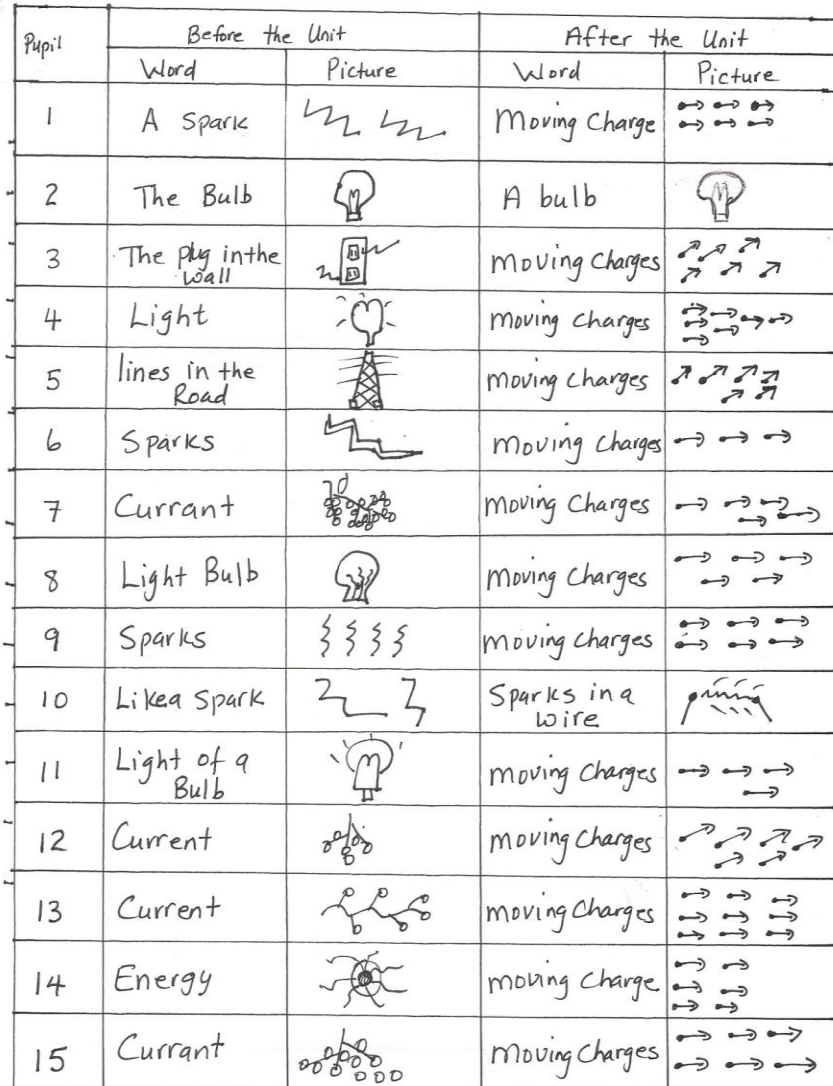 Pupil Before the Unit After the Unit
Word Picture Word Picture
1 A Spark Moving Charge
2 The Bulb A bulb
3 The plug in the wall moving Charges
4 Light moving charges
5 lines in the Road moving Charges
6 Sparks moving Charges
7 Currant moving Charges
8 Light Bulb moving Charges
9 Sparks moving Charges
10 Like a Spark Sparks in a wire
11 Light of a Bulb moving Charges
12 Current moving Charges
13 Current moving Charges
14 Energy moving Charge
15 Currant moving Charges